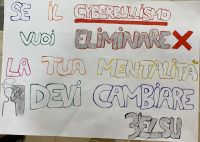 SE IL CYBERBULLISMO
VUOI ELIMINARE X
LA TUA MENTALITÀ
DEVI CAMBIARE
3°ELSU